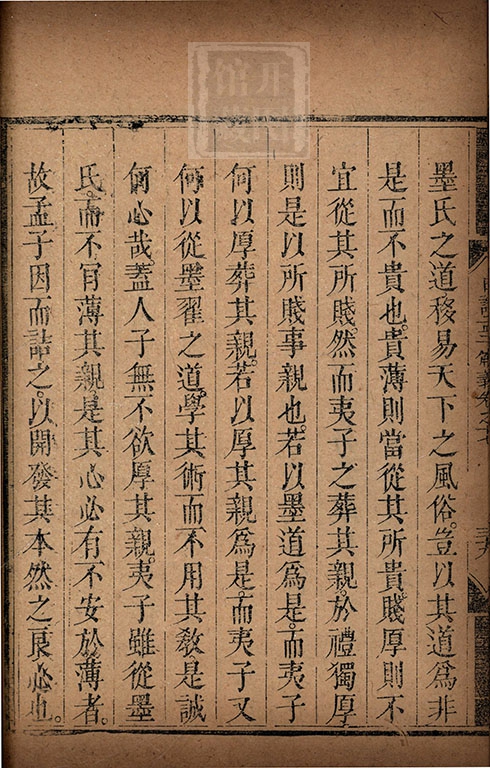 墨氏之道移易天下之風俗。豈以其道爲非
是而不貴也。貴薄則當從其所貴。賤厚則不
宜從其所賤。然而夷子之葬其親。於禮獨厚
則是以所賤事親也。若以墨道爲是而夷子
何以厚葬其親。若以厚其親爲是。而夷子又
何以從墨翟之道。學其術而不用其教是誠
何心哉。蓋人子無不欲厚其親。夷子雖從墨
氏。而不肎薄其親。是其心必有不安於薄者。
故孟子因而詰之。以開發其本然之良心也。